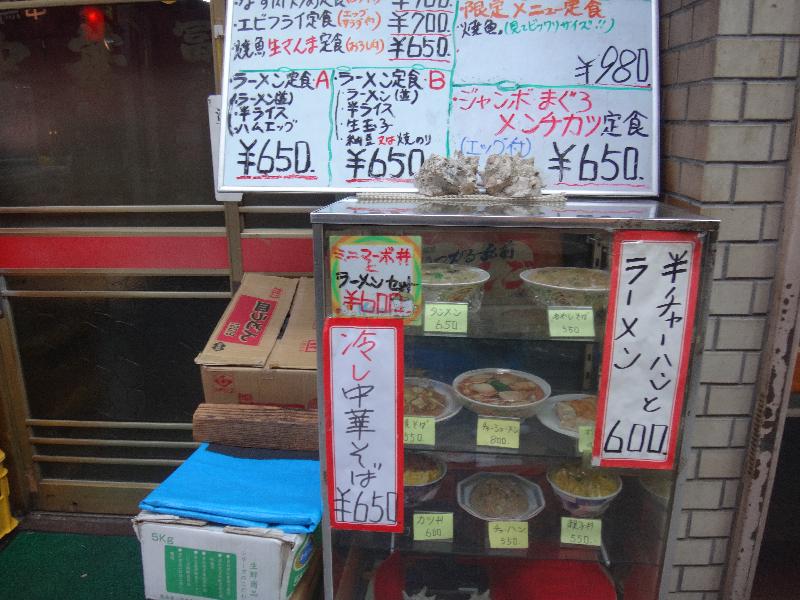 ¥700.
・エビフライ定食
¥700.
・焼魚 生さんま定食(おろし付)
¥650.
・限定メニュー定食
焼魚。(見てビックリサイズ!!)
¥980
・ラーメン定食・A
・ラーメン(並)
・半ライス
・ハムエッグ
¥650.
・ラーメン定食・B
・ラーメン(並)
・半ライス
・生玉子
・納豆又は焼のり
¥650.
・ジャンボ まぐろ
メンチカツ定食
(エッグ付)
¥650.
ミニマーボ丼
と
ラーメンセット
¥600
冷し中華そば
¥650
半チャーハンと
ラーメン
600
タンメン
650
550
550
チャーシューメン
800
カツ丼
600
チャーハン
550
親子丼
550
5Kg
生鮮商品